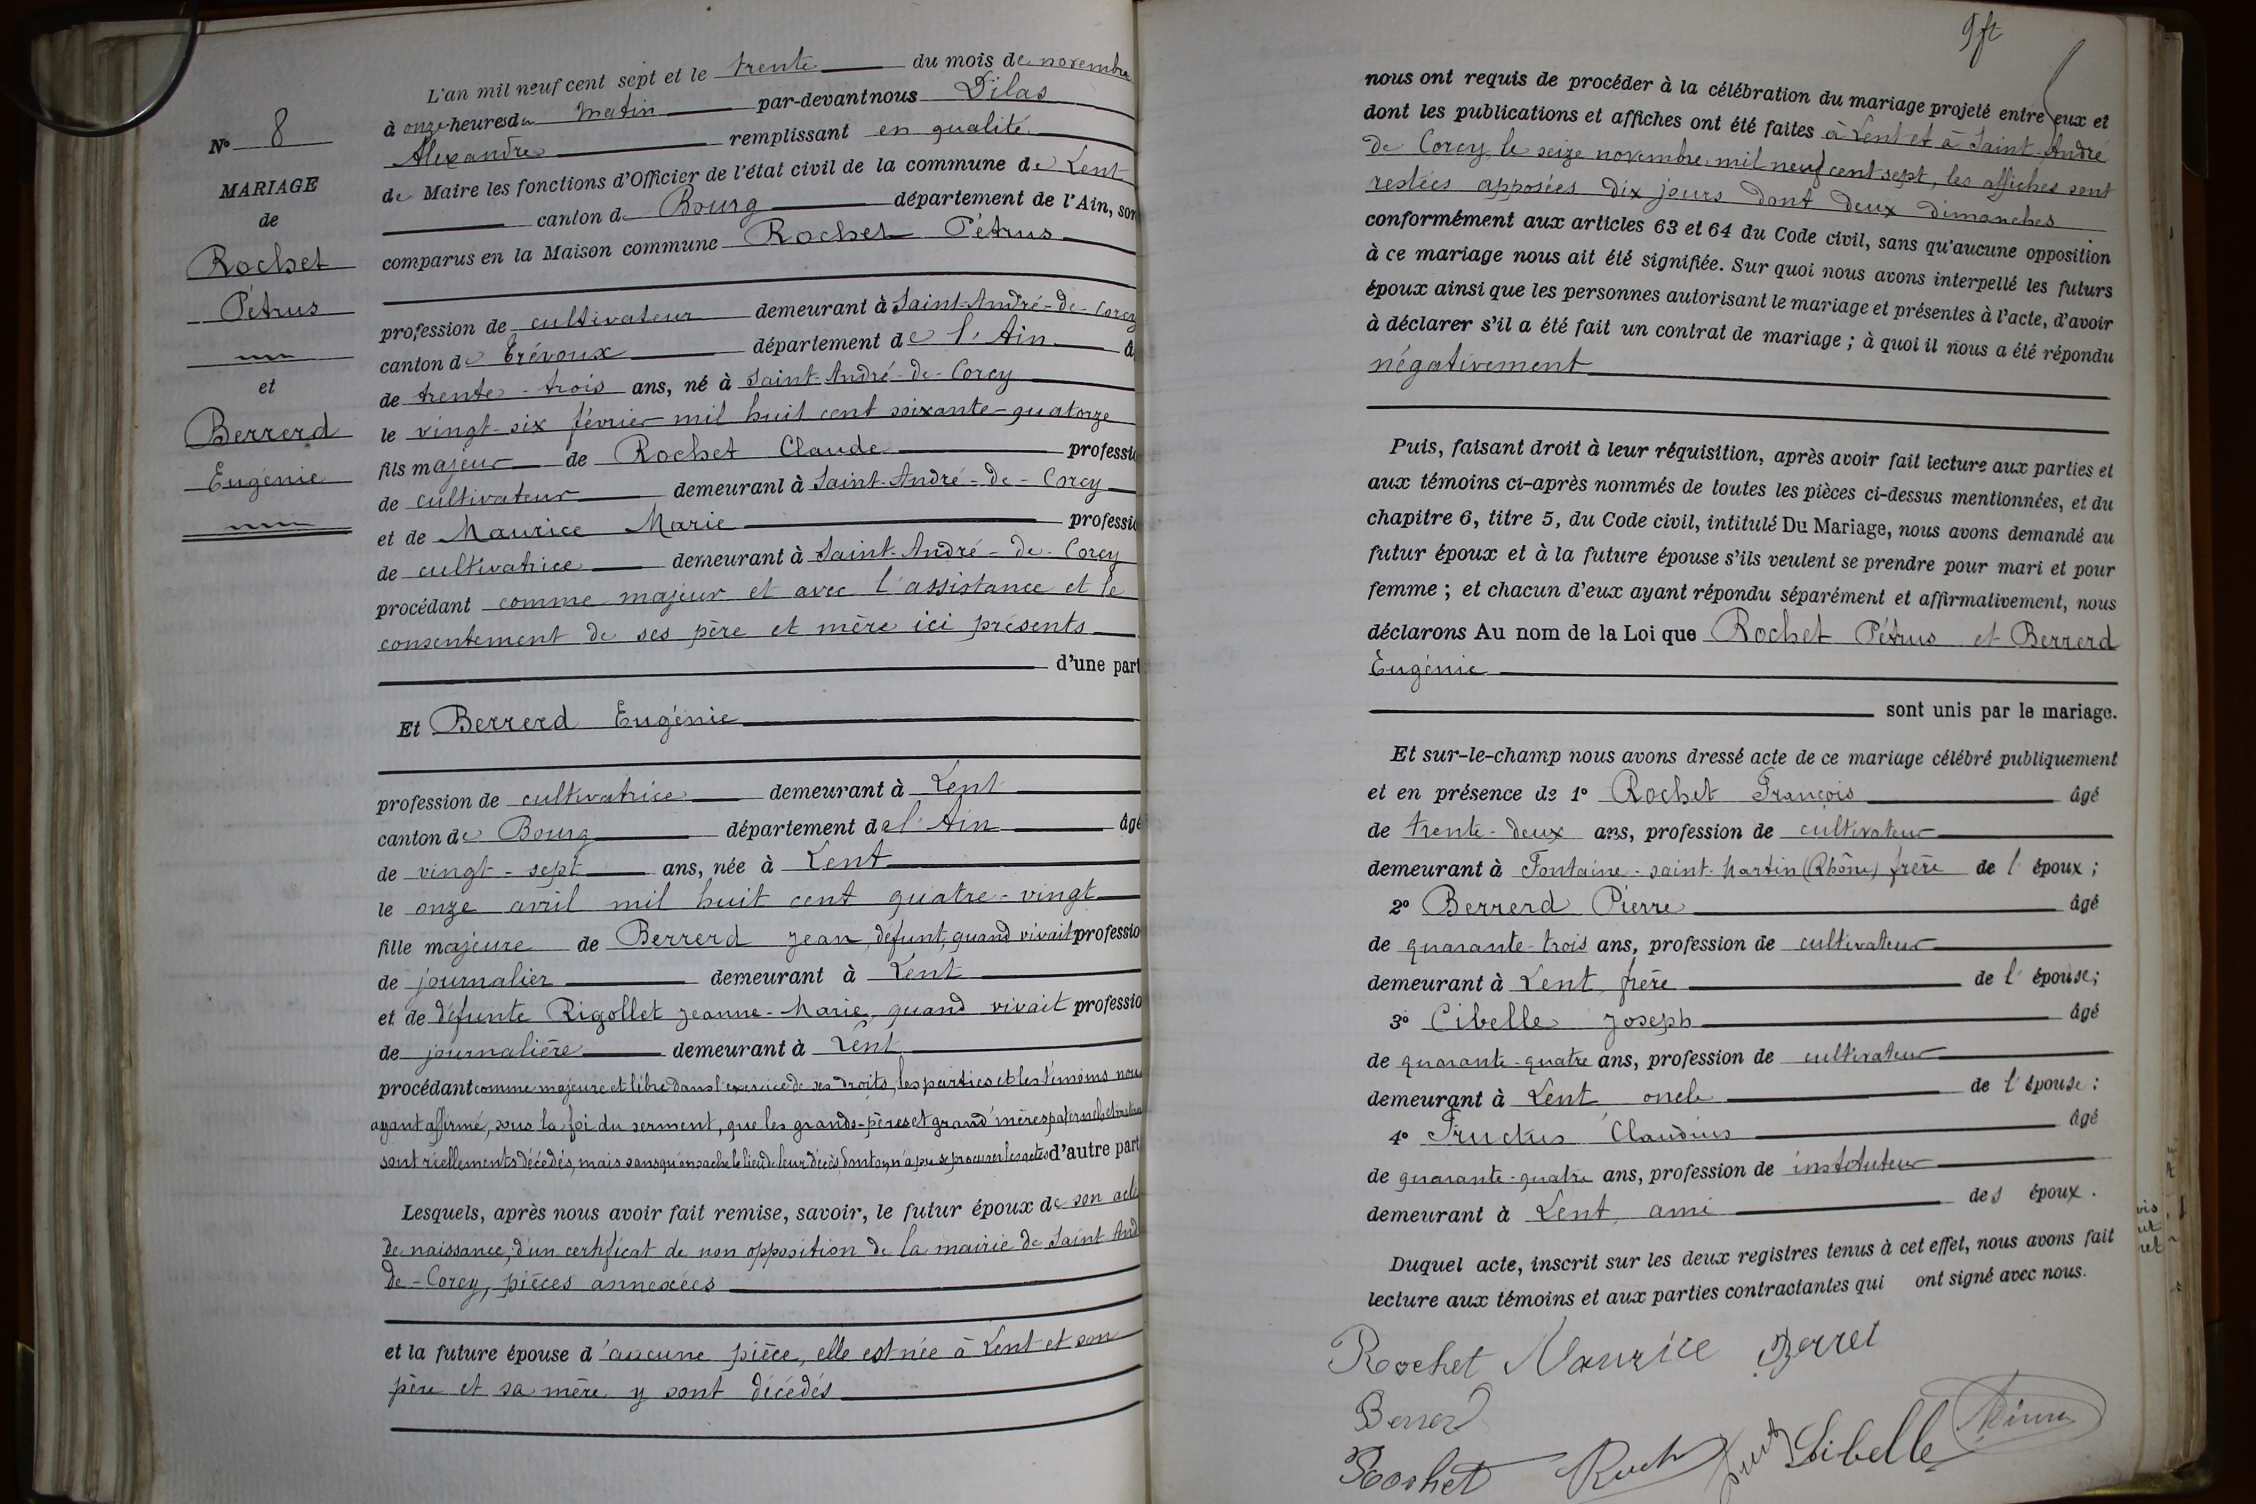 N° 8
MARIAGE
de
Rochet
Pétrus
et
Berrerd
Eugénie
L'an mil neuf cent sept et le trente du mois de novembre
à onze heures du matin par-devant nous Dilas
Alexandre remplissant en qualité
de Maire les fonctions d'Officier de l'état civil de la commune de Lent
canton de Bourg département de l'Ain, son
comparus en la Maison commune Rochet Pétrus
profession de cultivateur demeurant à Saint-André-de-Corcy
canton de Trévoux département de l'Ain â
de trente-trois ans, né à Saint-André-de-Corcy
le vingt-six février mil huit cent soixante-quatorze
fils majeur de Rochet Claude professio
de cultivateur demeurant à Saint-André-de-Corcy
et de Maurice Marie professio
de cultivatrice demeurant à Saint-André-de-Corcy
procédant comme majeur et avec l'assistance et le
consentement de ses père et mère ici présents
d'une part
Et Berrerd Eugénie
profession de cultivatrice demeurant à Lent
canton de Bourg département de l'Ain âgé
de vingt-sept ans, née à Lent
le onze avril mil huit cent quatre-vingt
fille majeure de Berrerd Jean, défunt, quand vivait professio
de journalier demeurant à Lent
et de défunte Rigollet Jeanne-Marie, quand vivait professio
de journalière demeurant à Lent
procédant comme majeure et libre dans l'exercice de ses droits, les parties et les témoins nous
ayant affirmé, sous la foi du serment, que les grands-pères et grand'mères paternels et
sont réellements décédés, mais sans qu'on sache le lieu de leur décès dont on n'a pu se procurer les actes d'autre part
Lesquels, après nous avoir fait remise, savoir, le futur époux de son acte
de naissance, d'un certificat de non opposition de la mairie de Saint And
de-Corcy, pièces annexées
et la future épouse d'aucune pièce, elle est née à Lent et son
père et sa mère y sont décédés
9 ft
nous ont requis de procéder à la célébration du mariage projeté entre eux et
dont les publications et affiches ont été faites à Lent et à Saint-André
de Corcy, le seize novembre mil neuf cent sept, les affiches sont
restées apposées dix jours dont deux dimanches
conformément aux articles 63 et 64 du Code civil, sans qu'aucune opposition
à ce mariage nous ait été signifiée. Sur quoi nous avons interpellé les futurs
époux ainsi que les personnes autorisant le mariage et présentes à l'acte, d'avoir
à déclarer s'il a été fait un contrat de mariage ; à quoi il nous a été répondu
négativement
Puis, faisant droit à leur réquisition, après avoir fait lecture aux parties et
aux témoins ci-après nommés de toutes les pièces ci-dessus mentionnées, et du
chapitre 6, titre 5, du Code civil, intitulé Du Mariage, nous avons demandé au
futur époux et à la future épouse s'ils veulent se prendre pour mari et pour
femme ; et chacun d'eux ayant répondu séparément et affirmativement, nous
déclarons Au nom de la Loi que Rochet Pétrus et Berrerd
Eugénie
sont unis par le mariage.
Et sur-le-champ nous avons dressé acte de ce mariage célébré publiquement
et en présence de 1° Rochet François âgé
de trente-deux ans, profession de cultivateur
demeurant à Fontaine-saint-Martin (Rhône) frère de l'époux ;
2° Berrerd Pierre âgé
de quarante-trois ans, profession de cultivateur
demeurant à Lent frère de l'épouse;
3° Cibelle Joseph âgé
de quarante-quatre ans, profession de cultivateur
demeurant à Lent oncle de l'épouse ;
4° Fructus Claudius âgé
de quarante-quatre ans, profession de instituteur
demeurant à Lent, ami des époux.
Duquel acte, inscrit sur les deux registres tenus à cet effet, nous avons fait
lecture aux témoins et aux parties contractantes qui ont signé avec nous.
Rochet Maurice Berret
Berrerd
Rochet Cibelle